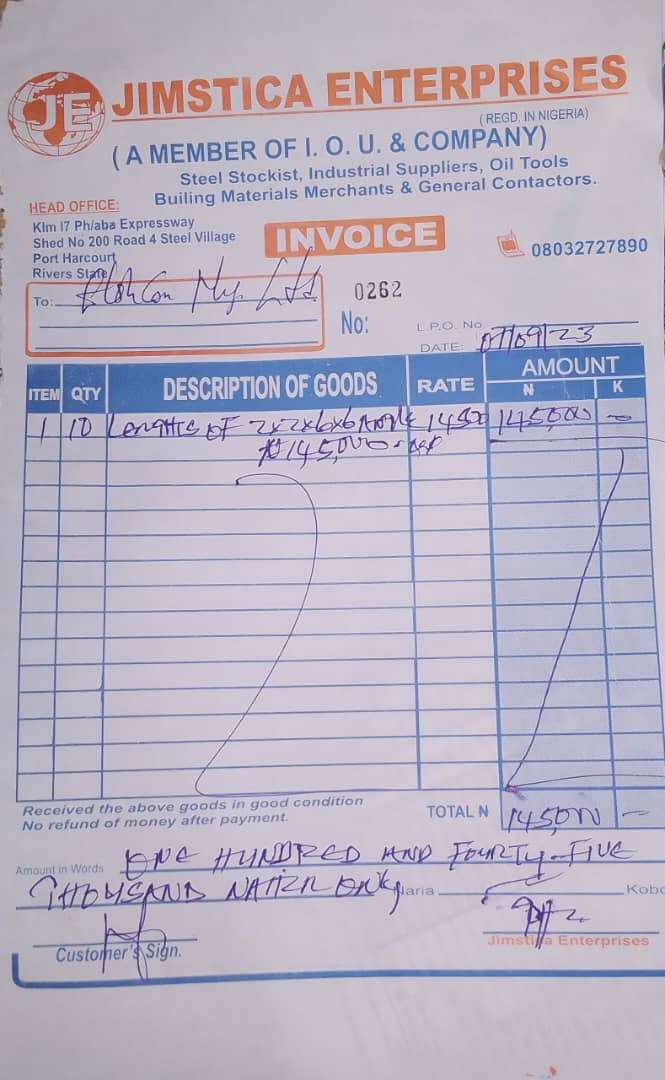 JE JIMSTICA ENTERPRISES
(REGD. IN NIGERIA)
(A MEMBER OF I. O. U. & COMPANY)
Steel Stockist, Industrial Suppliers, Oil Tools
Builing Materials Merchants & General Contactors.
HEAD OFFICE:
Klm 17 Ph/aba Expressway
Shed No 200 Road 4 Steel Village
Port Harcourt
Rivers State
INVOICE
08032727890
To: Ltd
0262
No:
L.P.O. No
DATE: 07/09/23
ITEM QTY DESCRIPTION OF GOODS RATE AMOUNT
₦ K
1 10 Lengths of 2x2x6x6 Angle 14500 145,000 -
₦145,000 -
Received the above goods in good condition
No refund of money after payment.
TOTAL N 145,000 -
Amount in Words ONE HUNDRED AND FOURTY-FIVE
THOUSAND Naria Kobo
Customer's Sign.
Jimstica Enterprises